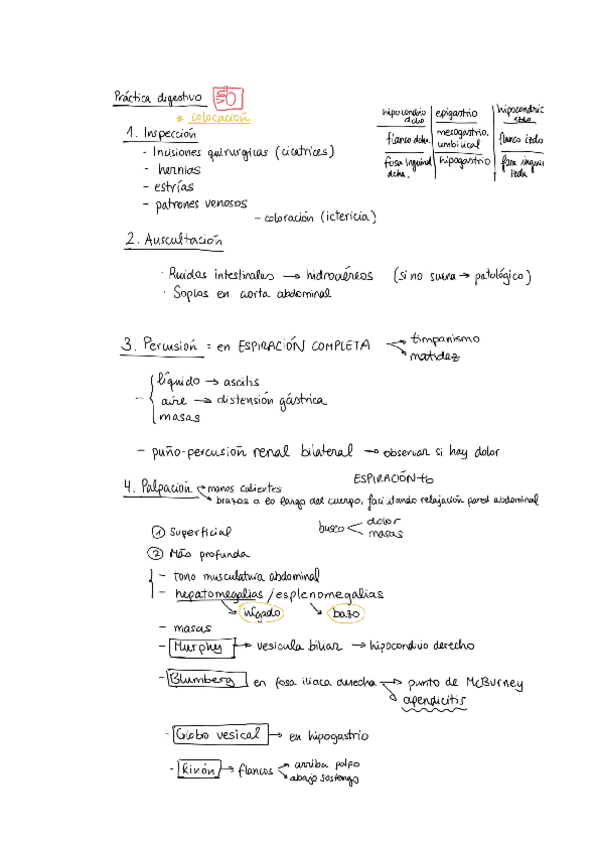 Práctica digestivo
* colocación
hipocondrio dcho | epigastrio | hipocondrio izdo
flanco dcho. | mesogastrio. umbilical | flanco izdo
fosa inguinal dcha. | hipogastrio | fosa inguin izda
1. Inspección
- Incisiones quirurgicas (cicatrices)
- hernias
- estrías
- patrones venosos
- coloración (ictericia)
2. Auscultación
· Ruidos intestinales → hidroaéreos (si no suena → patológico)
· Soplos en aorta abdominal
3. Percusión = en ESPIRACIÓN COMPLETA
timpanismo
matidez
líquido → ascitis
- aire → distensión gástrica
masas
- puño-percusión renal bilateral → observar si hay dolor
ESPIRACIÓN
4. Palpación
manos calientes
brazos a lo largo del cuerpo, facilitando relajación pared abdominal
1 Superficial
busco
dolor
masas
2 Mão profunda
- tono musculatura abdominal
- hepatomegalias / esplenomegalias
hígado
bazo
- masas
- Murphy → vesicula biliar → hipocondrio derecho
- Blumberg en fosa iliaca derecha → punto de McBurney
apendicitis
- Globo vesical → en hipogastrio
- Riñón → flancos
arriba palpo
abajo sostengo